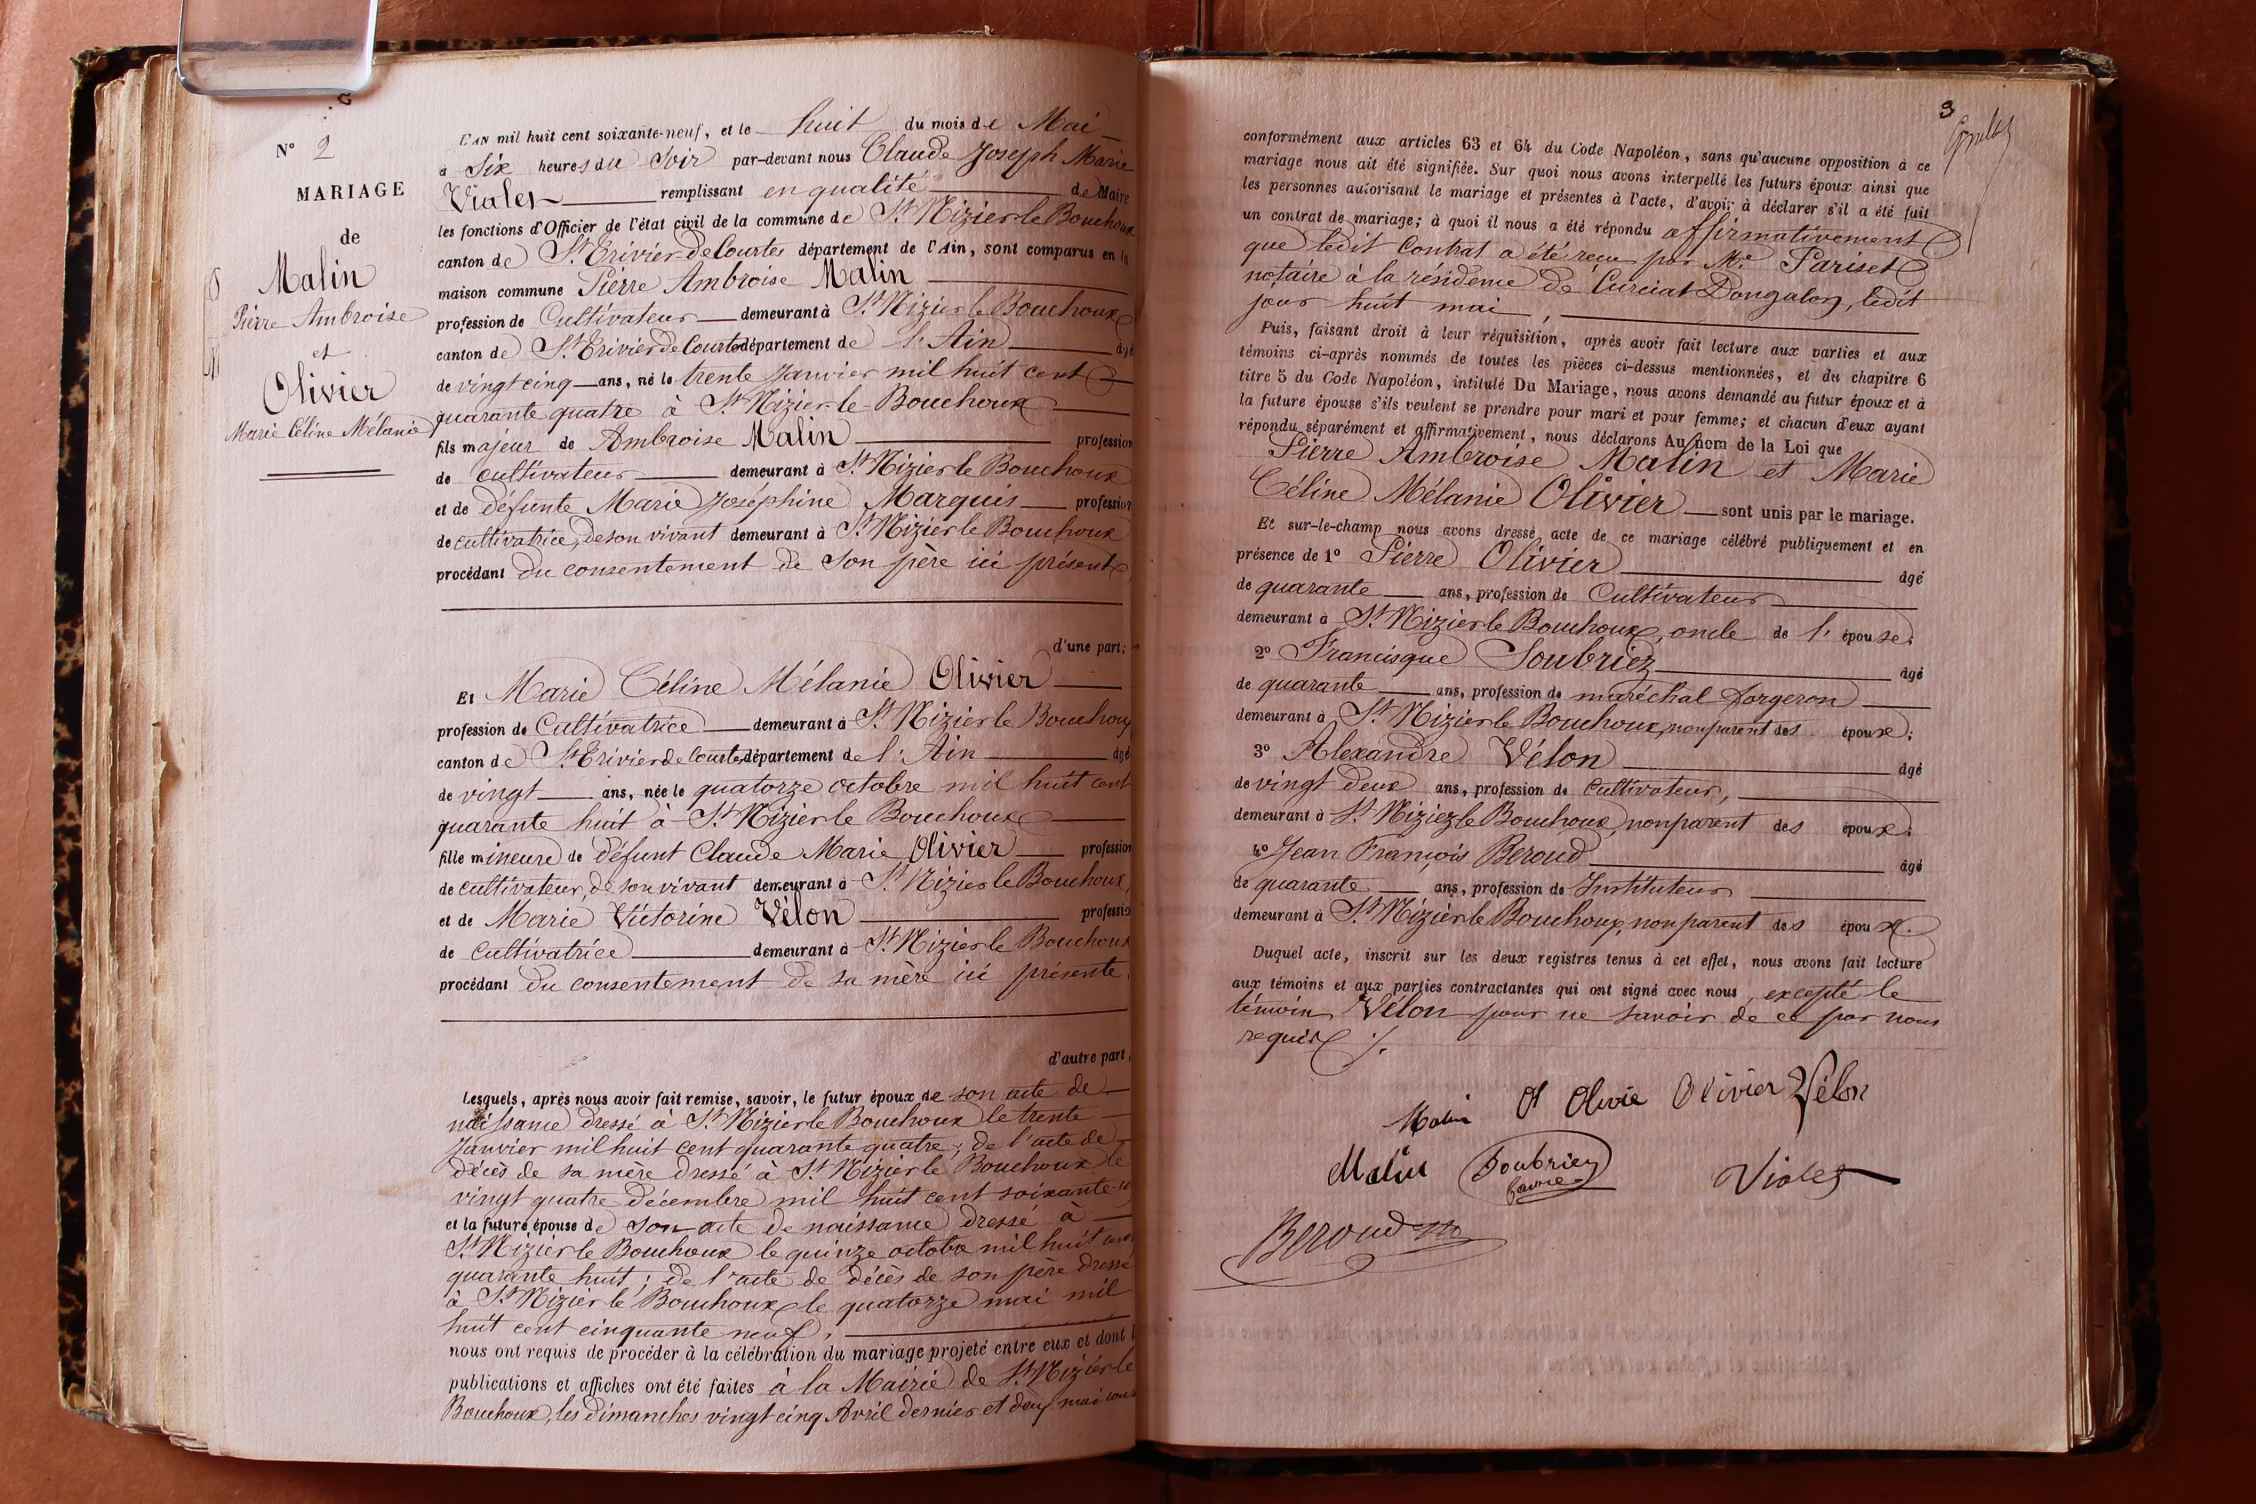 N° 2
MARIAGE
de
Malin
Pierre Ambroise
et
Olivier
Marie Céline Mélanie
L'AN mil huit cent soixante-neuf, et le huit du mois de Mai
à Six heures du Soir par-devant nous Claude Joseph Marie
Violet remplissant en qualité de Maire
les fonctions d'Officier de l'état civil de la commune de St Nizier le Bouchoux
canton de St Trivier de Courtes département de l'Ain, sont comparus en la
maison commune Pierre Ambroise Malin
profession de Cultivateur demeurant à St Nizier le Bouchoux
canton de St Trivier de Courtes département de l'Ain âgé
de vingt cinq ans, né le trente Janvier mil huit cent
quarante quatre à St Nizier le Bouchoux
fils majeur de Ambroise Malin profession
de cultivateur demeurant à St Nizier le Bouchoux
et de défunte Marie Joséphine Marquis profession
de cultivatrice, de son vivant demeurant à St Nizier le Bouchoux
procédant du consentement de son père ici présent
d'une part;
Et Marie Céline Mélanie Olivier
profession de Cultivatrice demeurant à St Nizier le Bouchoux
canton de St Trivier de Courtes département de l'Ain âgé
de vingt ans, née le quatorze octobre mil huit cent
quarante huit à St Nizier le Bouchoux
fille mineure de défunt Claude Marie Olivier profession
de cultivateur, de son vivant demeurant à St Nizier le Bouchoux,
et de Marie Victorine Vélon profession
de cultivatrice demeurant à St Nizier le Bouchoux
procédant du consentement de sa mère ici présente.
d'autre part,
Lesquels, après nous avoir fait remise, savoir, le futur époux de son acte de
naissance dressé à St Nizier le Bouchoux le trente
Janvier mil huit cent quarante quatre; de l'acte de
décès de sa mère dressé à St Nizier le Bouchoux le
vingt quatre décembre mil huit cent soixante
et la future épouse de son acte de naissance dressé à
St Nizier le Bouchoux le quinze octobre mil huit cent
quarante huit; de l'acte de décès de son père dressé
à St Nizier le Bouchoux le quatorze mai mil
huit cent cinquante neuf,
nous ont requis de procéder à la célébration du mariage projeté entre eux et dont
publications et affiches ont été faites à la Mairie de St Nizier le
Bouchoux, les dimanches vingt cinq Avril dernier et deux mai
3
conformément aux articles 63 et 64 du Code Napoléon, sans qu'aucune opposition à ce
mariage nous ait été signifiée. Sur quoi nous avons interpellé les futurs époux ainsi que
les personnes autorisant le mariage et présentes à l'acte, d'avoir à déclarer s'il a été fait
un contrat de mariage; à quoi il nous a été répondu affirmativement
que ledit Contrat a été reçu par Me Pariset
notaire à la résidence de Curciat Dongalon, ledit
jour huit mai,
Puis, faisant droit à leur réquisition, après avoir fait lecture aux parties et aux
témoins ci-après nommés de toutes les pièces ci-dessus mentionnées, et du chapitre 6
titre 5 du Code Napoléon, intitulé Du Mariage, nous avons demandé au futur époux et à
la future épouse s'ils veulent se prendre pour mari et pour femme; et chacun d'eux ayant
répondu séparément et affirmativement, nous déclarons Au nom de la Loi que
Pierre Ambroise Malin et Marie
Céline Mélanie Olivier sont unis par le mariage.
Et sur-le-champ nous avons dressé acte de ce mariage célébré publiquement et en
présence de 1° Pierre Olivier âgé
de quarante ans, profession de Cultivateur
demeurant à St Nizier le Bouchoux, oncle de l'épouse;
2° Francisque Soubriez âgé
de quarante ans, profession de maréchal forgeron
demeurant à St Nizier le Bouchoux, non parent des époux;
3° Alexandre Vélon âgé
de vingt deux ans, profession de Cultivateur,
demeurant à St Nizier le Bouchoux, non parent des époux;
4° Jean François Beroud âgé
de quarante ans, profession de Instituteur
demeurant à St Nizier le Bouchoux, non parent des époux.
Duquel acte, inscrit sur les deux registres tenus à cet effet, nous avons fait lecture
aux témoins et aux parties contractantes qui ont signé avec nous, excepté le
témoin Vélon pour ne savoir de ce par nous
requis ./.
Malin O Olivie Olivier Vélon
Malin Soubriez Violet
Beroud